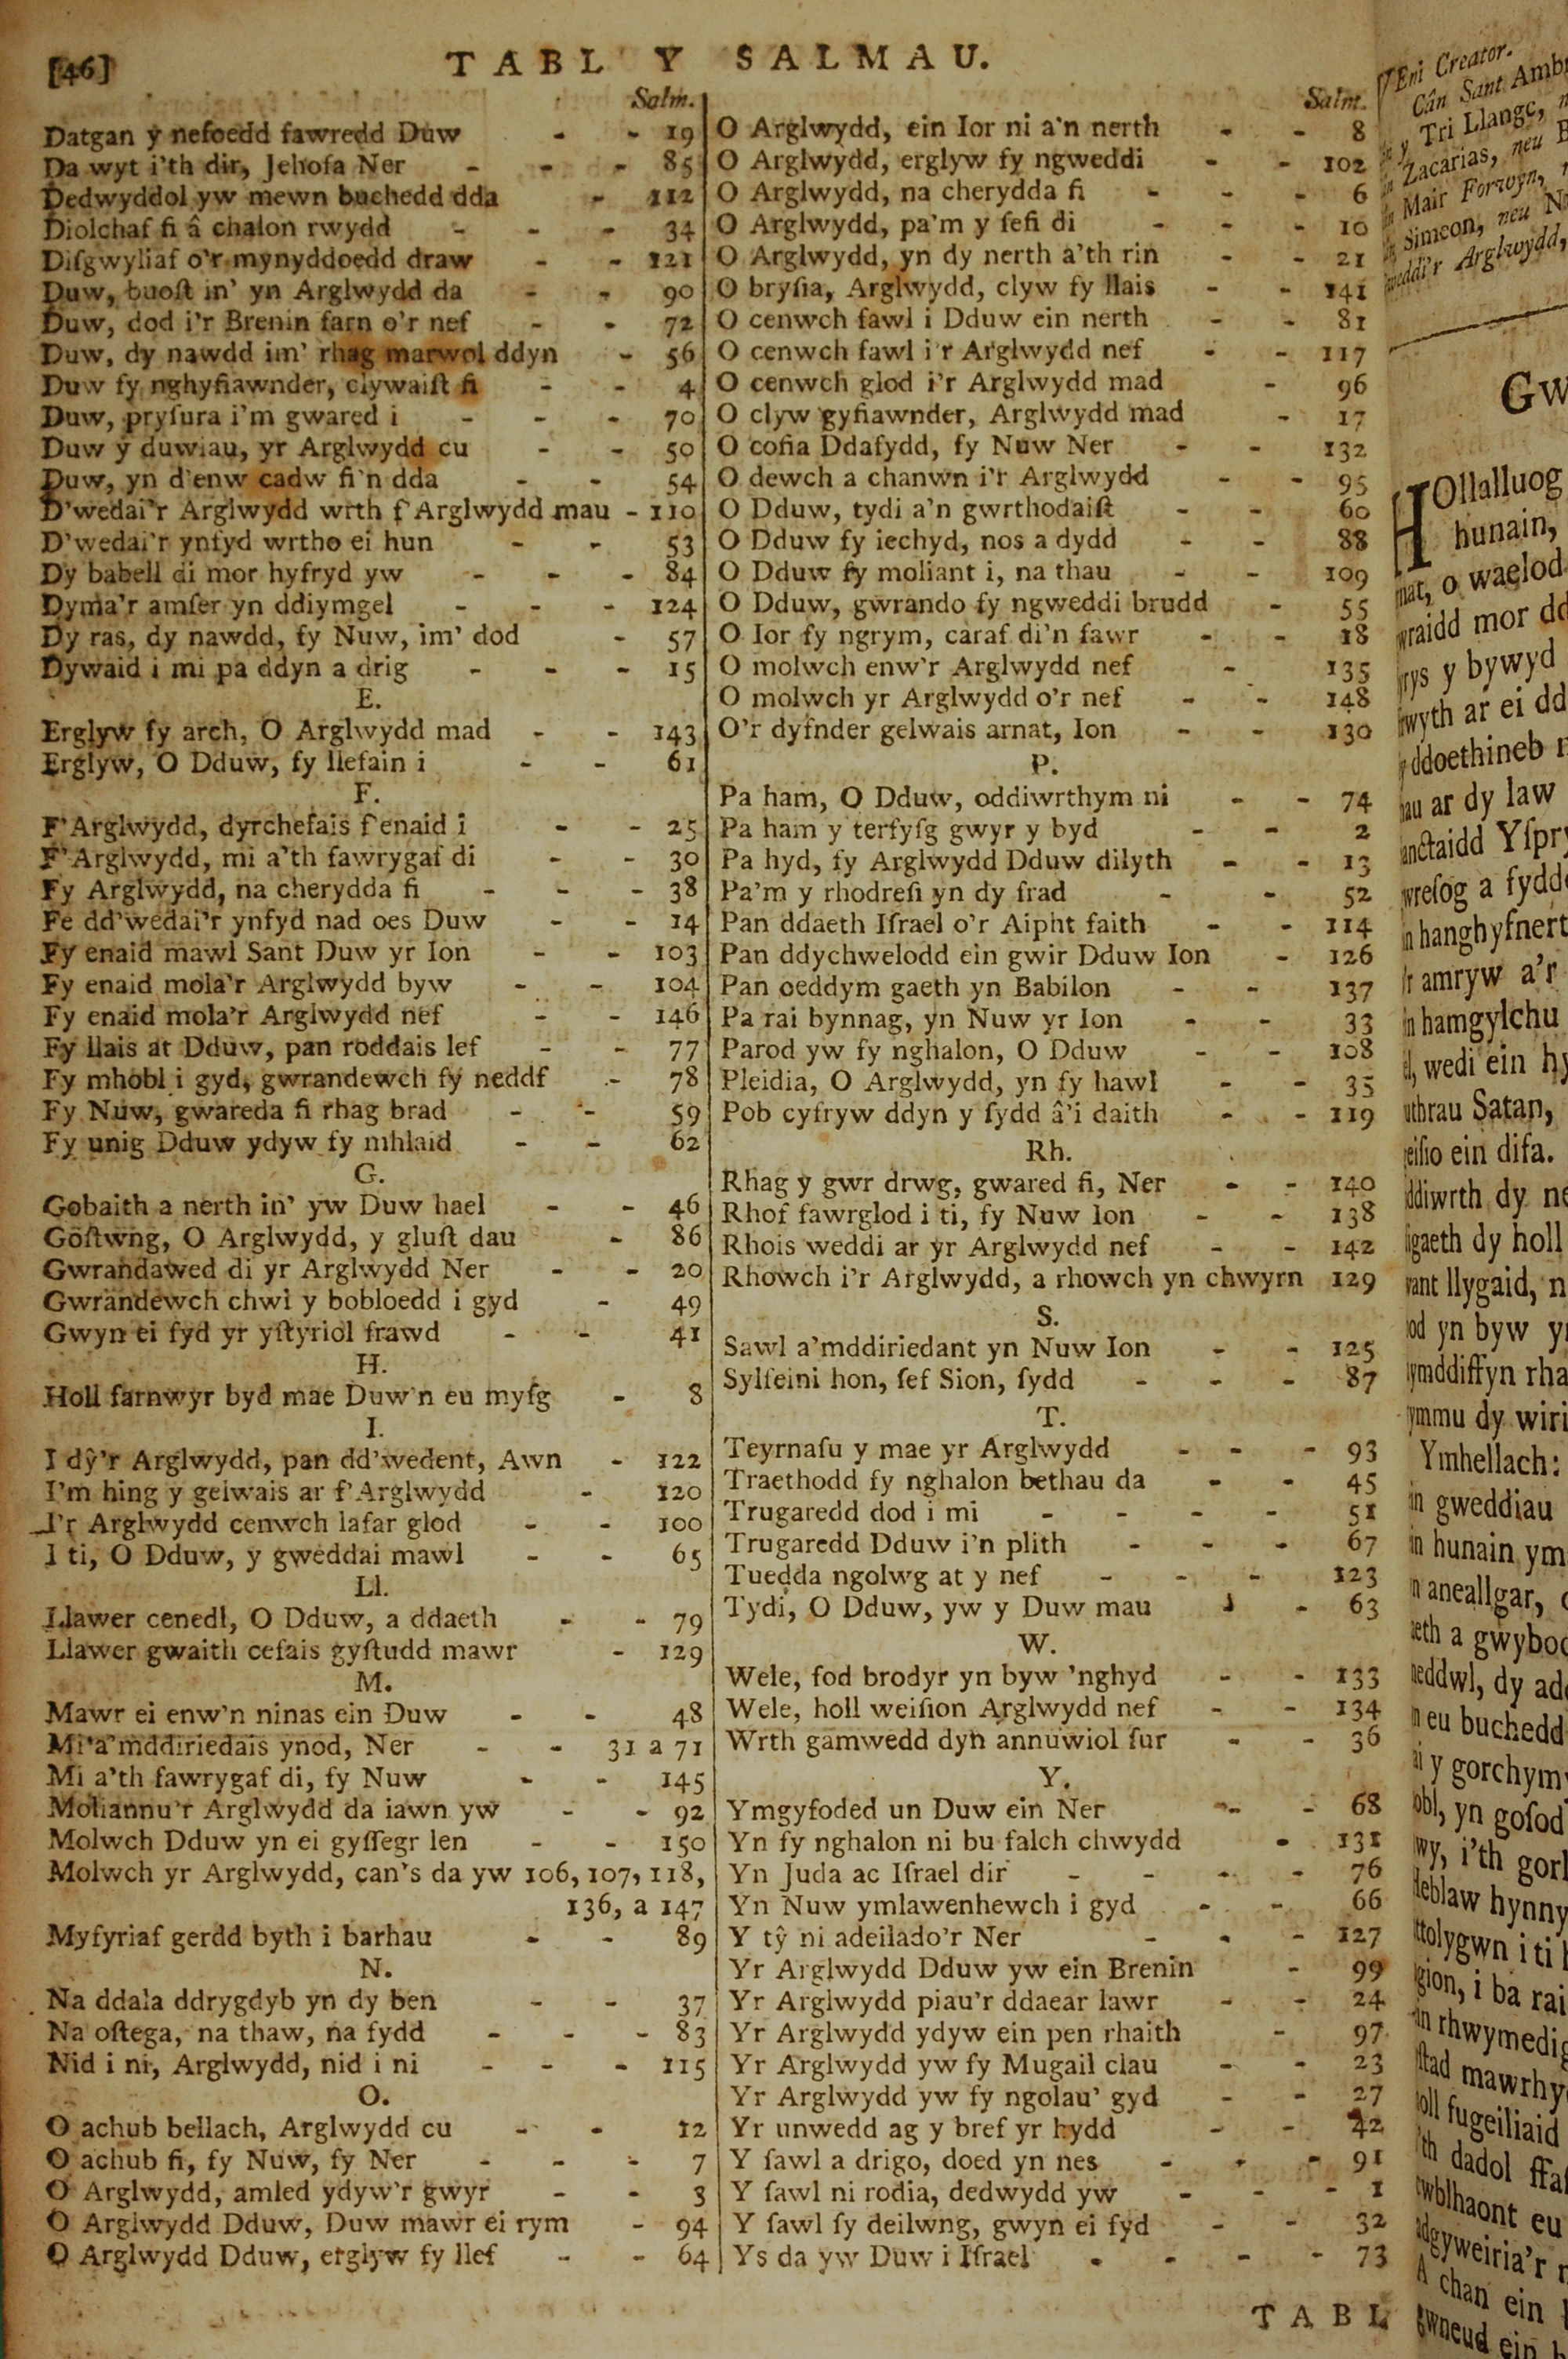 [46]
TABL Y SALMAU.
Salm.
Datgan y nefoedd fawredd Duw - - 19
Da wyt i'th dir, Jehofa Ner - - - 85
Dedwyddol yw mewn buchedd dda - 112
Diolchaf fi â chalon rwydd - - - 34
Diſgwyliaf o'r mynyddoedd draw - - 121
Duw, buoſt in' yn Arglwydd da - - 90
Duw, dod i'r Brenin farn o'r nef - - 72
Duw, dy nawdd im' rhag marwol ddyn - 56
Duw fy nghyfiawnder, clywaiſt fi - - 4
Duw, pryſura i'm gwared i - - - 70
Duw y duwiau, yr Arglwydd cu - - 50
Duw, yn d'enw cadw fi'n dda - - 54
D'wedai'r Arglwydd wrth f'Arglwydd mau - 110
D'wedai'r ynfyd wrtho ei hun - - 53
Dy babell di mor hyfryd yw - - - 84
Dyma'r amſer yn ddiymgel - - - 124
Dy ras, dy nawdd, fy Nuw, im' dod - 57
Dywaid i mi pa ddyn a drig - - - 15
E.
Erglyw fy arch, O Arglwydd mad - - 143
Erglyw, O Dduw, fy llefain i - - 61
F.
F'Arglwydd, dyrchefais f'enaid i - - 25
F'Arglwydd, mi a'th fawrygaf di - - 30
Fy Arglwydd, na cherydda fi - - - 38
Fe dd'wedai'r ynfyd nad oes Duw - - 14
Fy enaid mawl Sant Duw yr Ion - - 103
Fy enaid mola'r Arglwydd byw - - 104
Fy enaid mola'r Arglwydd nef - - 146
Fy llais at Dduw, pan roddais lef - - 77
Fy mhobl i gyd, gwrandewch fy neddf - 78
Fy Nuw, gwareda fi rhag brad - - 59
Fy unig Dduw ydyw fy mhlaid - - 62
G.
Gobaith a nerth in' yw Duw hael - - 46
Goſtwng, O Arglwydd, y gluſt dau - 86
Gwrandawed di yr Arglwydd Ner - - 20
Gwrandewch chwi y bobloedd i gyd - 49
Gwyn ei fyd yr yſtyriol frawd - - 41
H.
Holl farnwyr byd mae Duw'n eu myſg - 8
I.
I dŷ'r Arglwydd, pan dd'wedent, Awn - 122
I'm hing y gelwais ar f'Arglwydd - 120
I'r Arglwydd cenwch lafar glod - - 100
I ti, O Dduw, y gweddai mawl - - 65
Ll.
Llawer cenedl, O Dduw, a ddaeth - - 79
Llawer gwaith cefais gyſtudd mawr - 129
M.
Mawr ei enw'n ninas ein Duw - - 48
Mi a'mddiriedais ynod, Ner - - 31 a 71
Mi a'th fawrygaf di, fy Nuw - - 145
Moliannu'r Arglwydd da iawn yw - - 92
Molwch Dduw yn ei gyſſegr len - - 150
Molwch yr Arglwydd, can's da yw 106, 107, 118,
136, a 147
Myfyriaf gerdd byth i barhau - - 89
N.
Na ddala ddrygdyb yn dy ben - - 37
Na oſtega, na thaw, na fydd - - - 83
Nid i ni, Arglwydd, nid i ni - - - 115
O.
O achub bellach, Arglwydd cu - - 12
O achub fi, fy Nuw, fy Ner - - - 7
O Arglwydd, amled ydyw'r gwyr - - 3
O Arglwydd Dduw, Duw mawr ei rym - 94
O Arglwydd Dduw, erglyw fy llef - - 64
Salm.
O Arglwydd, ein Ior ni a'n nerth - - 8
O Arglwydd, erglyw fy ngweddi - - 102
O Arglwydd, na cherydda fi - - - 6
O Arglwydd, pa'm y ſefi di - - - 10
O Arglwydd, yn dy nerth a'th rin - - 21
O bryſia, Arglwydd, clyw fy llais - - 141
O cenwch fawl i Dduw ein nerth - - 81
O cenwch fawl i'r Arglwydd nef - - 117
O cenwch glod i'r Arglwydd mad - 96
O clyw gyfiawnder, Arglwydd mad - 17
O cofia Ddafydd, fy Nuw Ner - - 132
O dewch a chanwn i'r Arglwydd - - 95
O Dduw, tydi a'n gwrthodaiſt - - 60
O Dduw fy iechyd, nos a dydd - - 88
O Dduw fy moliant i, na thau - - 109
O Dduw, gwrando fy ngweddi brudd - 55
O Ior fy ngrym, caraf di'n fawr - - 18
O molwch enw'r Arglwydd nef - 135
O molwch yr Arglwydd o'r nef - - 148
O'r dyfnder gelwais arnat, Ion - - 130
P.
Pa ham, O Dduw, oddiwrthym ni - - 74
Pa ham y terfyſg gwyr y byd - - 2
Pa hyd, fy Arglwydd Dduw dilyth - - 13
Pa'm y rhodreſi yn dy frad - - 52
Pan ddaeth Iſrael o'r Aipht faith - - 114
Pan ddychwelodd ein gwir Dduw Ion - 126
Pan oeddym gaeth yn Babilon - - 137
Pa rai bynnag, yn Nuw yr Ion - - 33
Parod yw fy nghalon, O Dduw - - 108
Pleidia, O Arglwydd, yn fy hawl - - 35
Pob cyfryw ddyn y ſydd â'i daith - - 119
Rh.
Rhag y gwr drwg, gwared fi, Ner - - 140
Rhof fawrglod i ti, fy Nuw Ion - - 138
Rhois weddi ar yr Arglwydd nef - - 142
Rhowch i'r Arglwydd, a rhowch yn chwyrn 129
S.
Sawl a'mddiriedant yn Nuw Ion - - 125
Sylfeini hon, ſef Sion, ſydd - - - 87
T.
Teyrnaſu y mae yr Arglwydd - - - 93
Traethodd fy nghalon bethau da - - 45
Trugaredd dod i mi - - - - 51
Trugaredd Dduw i'n plith - - - 67
Tuedda ngolwg at y nef - - - 123
Tydi, O Dduw, yw y Duw mau - - 63
W.
Wele, fod brodyr yn byw 'nghyd - - 133
Wele, holl weiſion Arglwydd nef - - 134
Wrth gamwedd dyn annuwiol ſur - - 36
Y.
Ymgyfoded un Duw ein Ner - - 68
Yn fy nghalon ni bu falch chwydd - 131
Yn Juda ac Iſrael dir - - - - 76
Yn Nuw ymlawenhewch i gyd - - 66
Y tŷ ni adeilado'r Ner - - - 127
Yr Arglwydd Dduw yw ein Brenin - 99
Yr Arglwydd piau'r ddaear lawr - - 24
Yr Arglwydd ydyw ein pen rhaith - 97
Yr Arglwydd yw fy Mugail clau - - 23
Yr Arglwydd yw fy ngolau' gyd - - 27
Yr unwedd ag y bref yr hydd - - 42
Y ſawl a drigo, doed yn nes - - - 91
Y ſawl ni rodia, dedwydd yw - - - 1
Y ſawl ſy deilwng, gwyn ei fyd - - 32
Ys da yw Duw i Iſrael - - - - 73
TABL
Eni Creator.
Cân Sant
y Tri Llange,
Zacarias, neu
Mair Forwyn,
Simeon, neu
Arglwydd,
Ollalluog
hunain,
o waelod
mor
y bywyd
ar ei
ddoethineb
ar dy law
a
amryw a'r
hamgylchu
wedi ein
Satan,
ein difa.
dy
dy holl
llygaid,
yn byw
dy wiri
Ymhellach:
gweddiau
hunain
aneallgar,
a
dy
eu buchedd
y
yn goſod
i'th
hynny
i ti
i ba rai
fugeiliaid
dadol
eu
A chan ein
ein